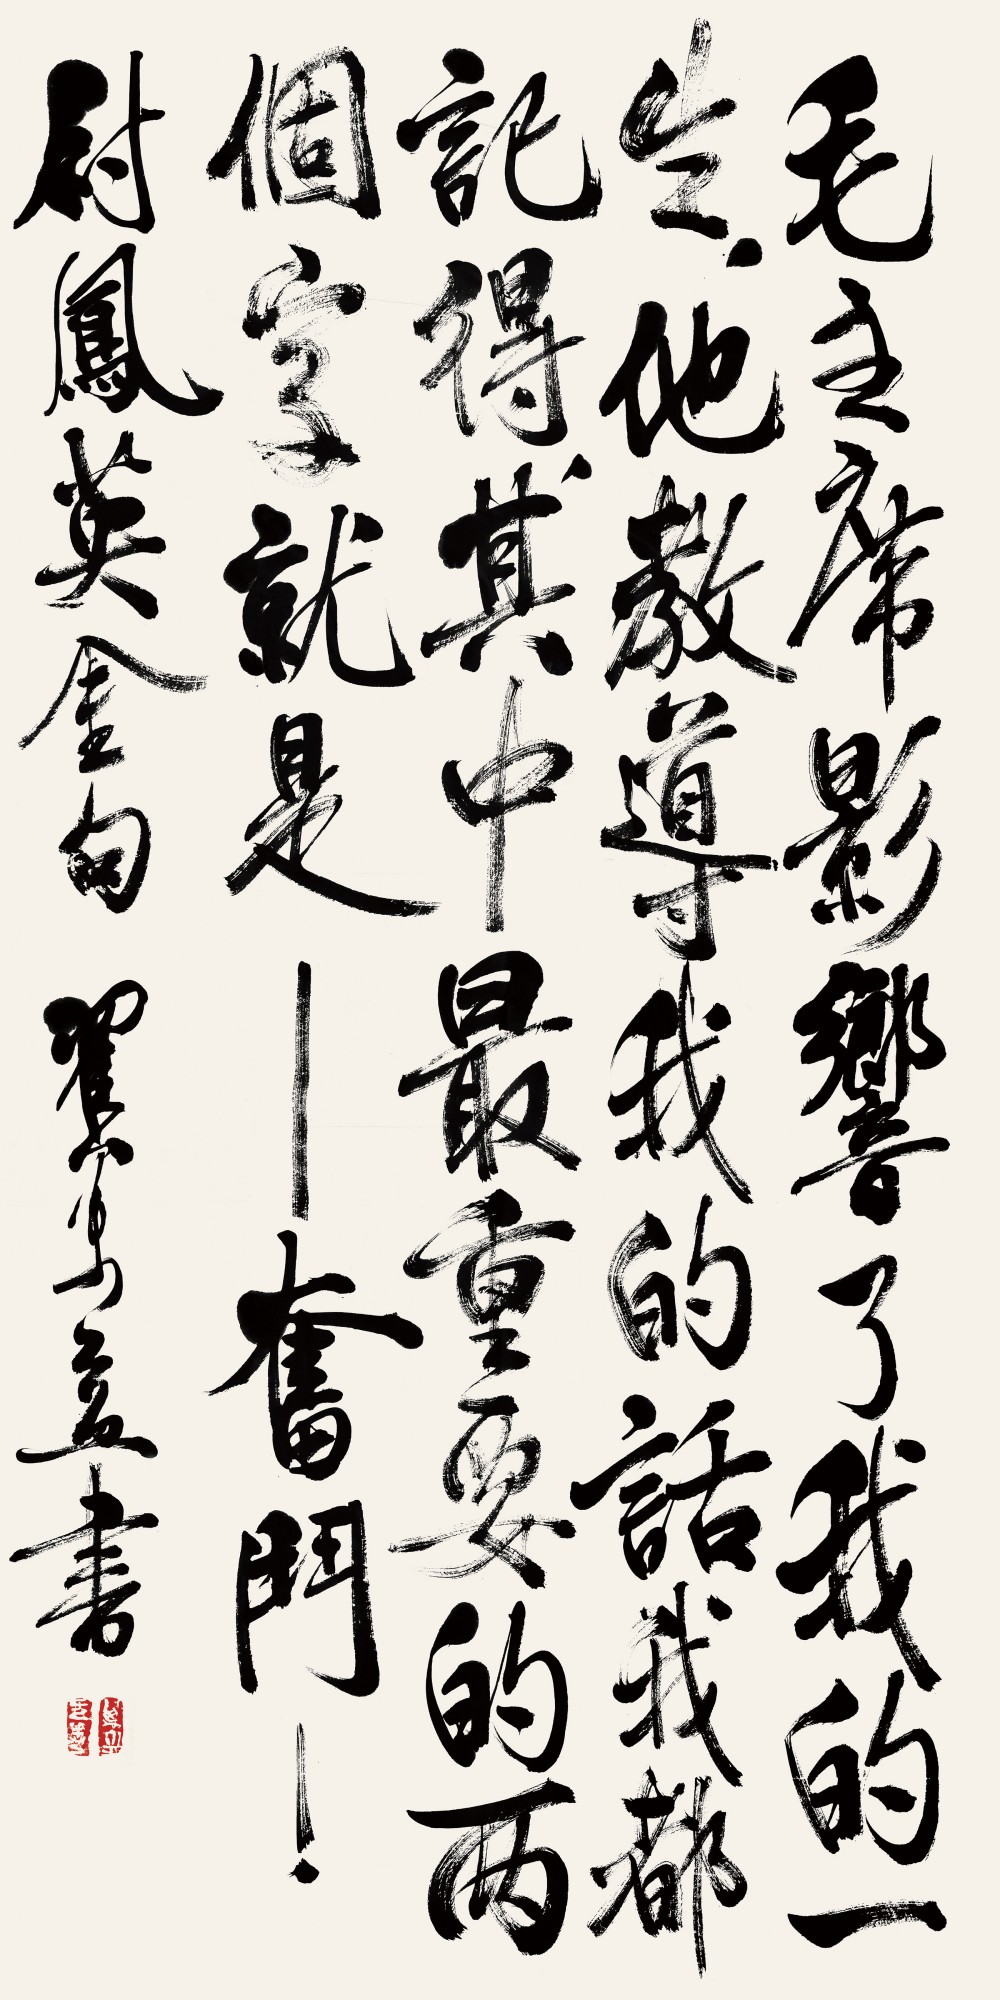 毛主席影響了我的一
生，他教導我的話我都
記得，其中最重要的两
個字就是—奮鬥！
尉鳳英金句 翟萬益書